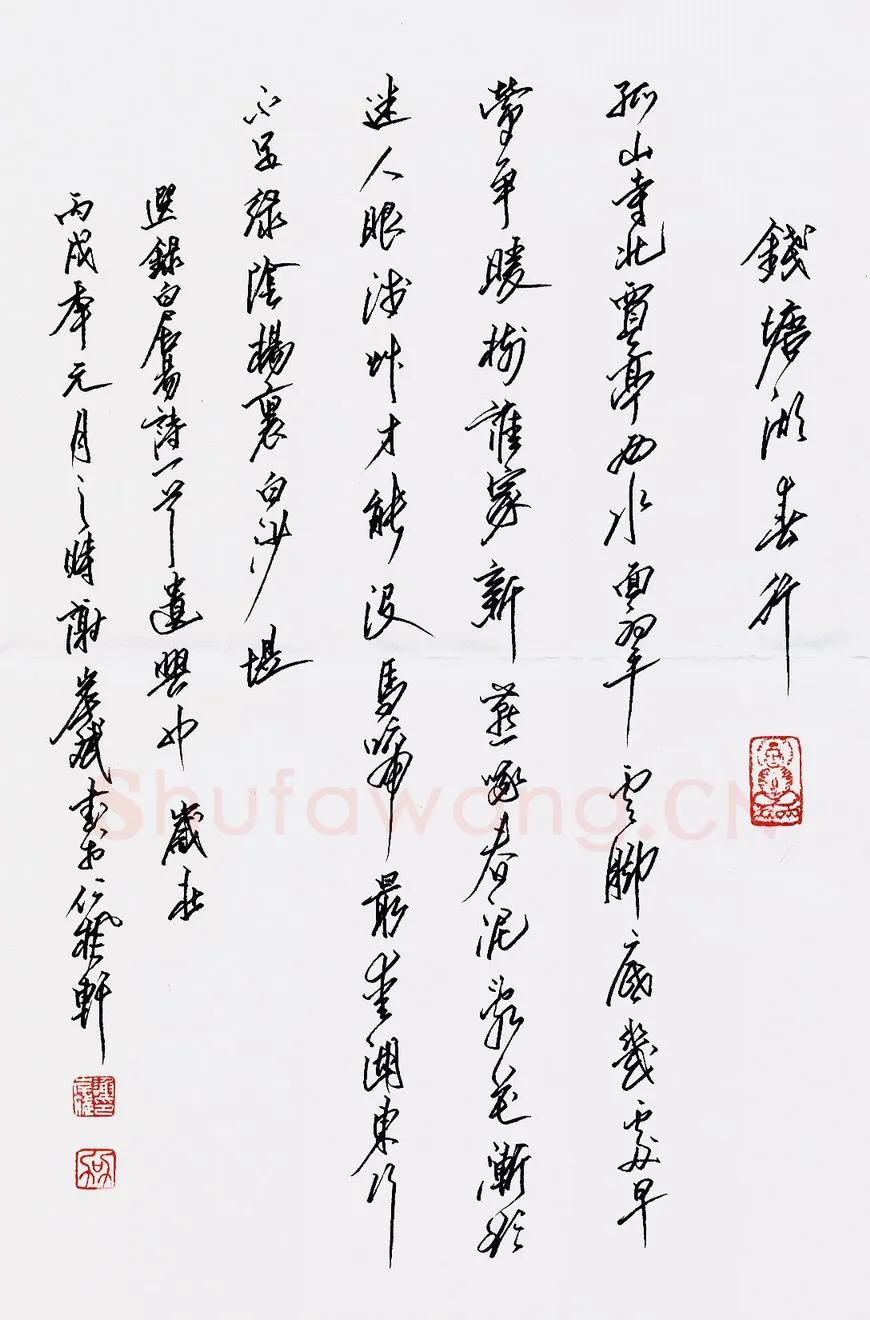 錢塘湖春行
孤山寺北賈亭西水面初平雲脚底幾處早
鶯爭暖樹誰家新燕啄春泥亂花漸欲
迷人眼淺艸才能沒馬啼最愛湖東行
不足綠陰楊裏白沙堤
選錄白居易詩一首遣興也歲在
丙戌年元月之時謝 書於仁 軒
Shufawang.CN